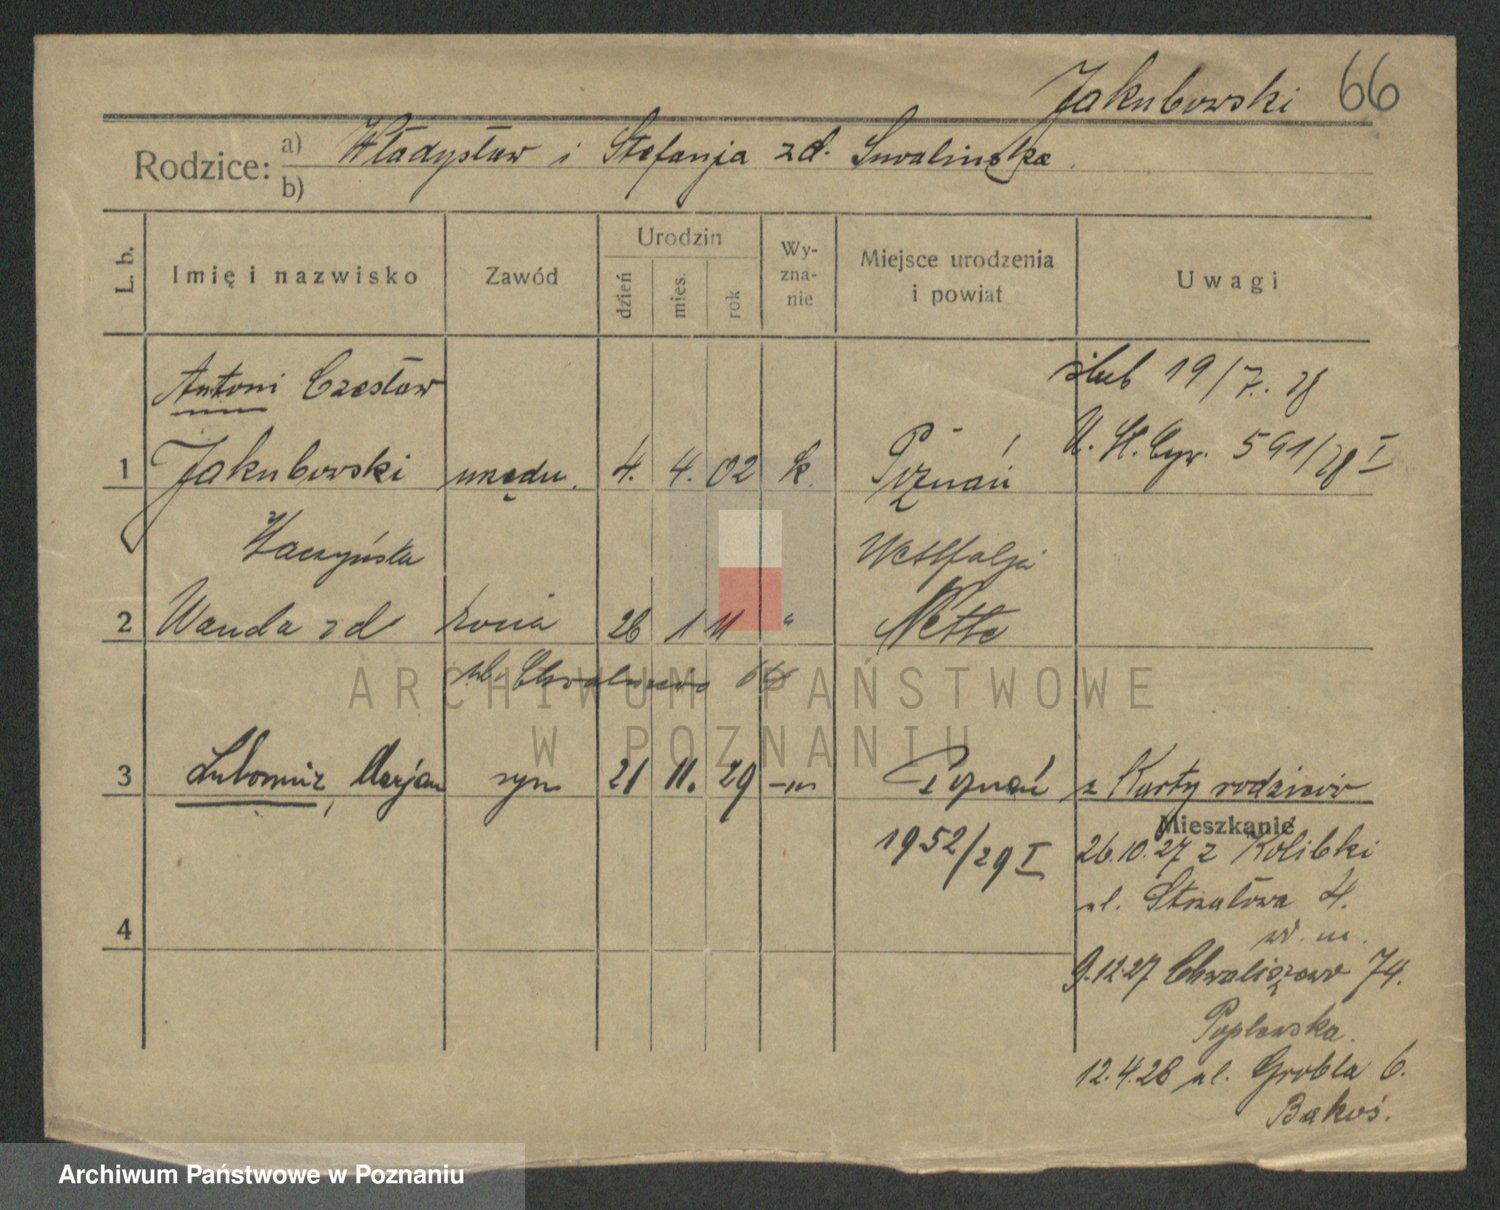 Jakubowski 66
Rodzice: a) Władysław i Stefanja zd. Suwalińska
b)
L. b. Imię i nazwisko Zawód Urodzin dzień mies. rok Wy-zna-nie Miejsce urodzenia i powiat Uwagi
Antoni Czesław ślub 19/7. 28
1 Jakubowski urzędn. 4. 4. 02 k. Poznań U. St. Cyw. 591/28 I
Westfalja
2 Wanda zd żona 26 1 11 " Nette
ul. Chwaliszewo
3 Lubomir, Marjan syn 21 11. 29 -„- Poznań z Karty rodziców
1952/29 I
Mieszkanie
26.10.27 z Kolibki
ul. Strzałowa 4.
4 w. m.
9.12.27 Chwaliszewo 74.
Poplewska.
12.4.28 ul. Grobla 6.
Bakoś.
ARCHIWUM PAŃSTWOWE
W POZNANIU
Archiwum Państwowe w Poznaniu